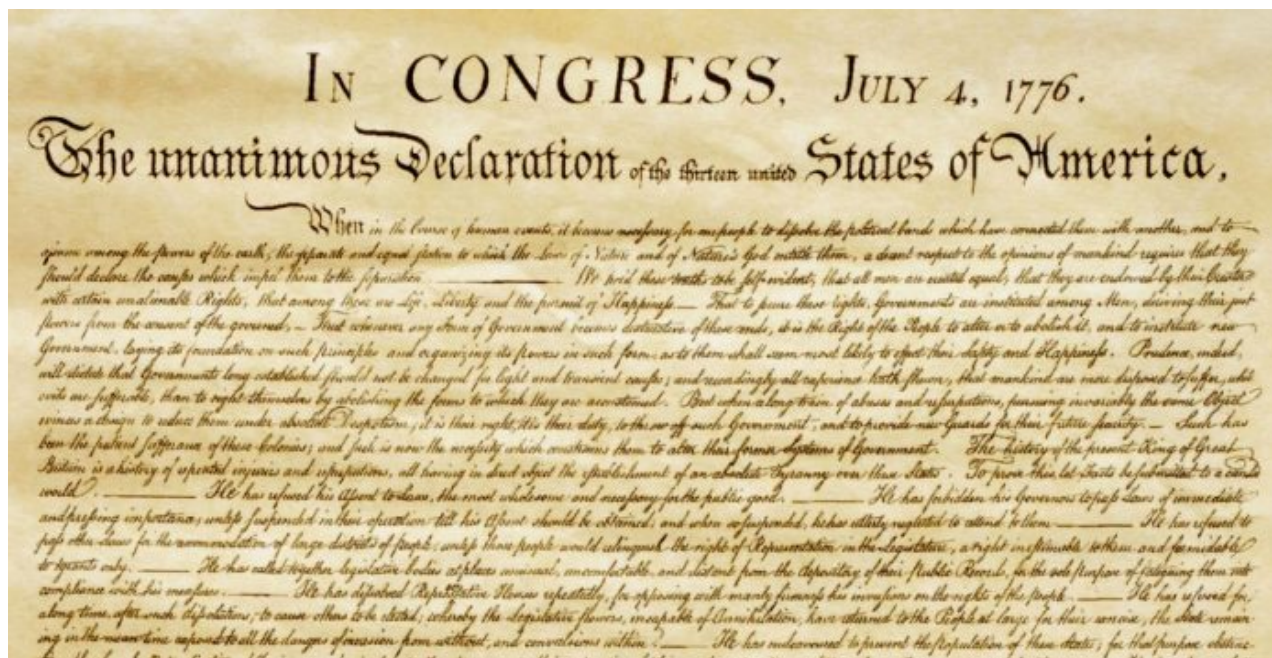 IN CONGRESS, JULY 4, 1776.
The unanimous Declaration of the thirteen united States of America,
When in the Course of human events, it becomes necessary for one people to dissolve the political bands which have connected them with another, and to
assume among the powers of the earth, the separate and equal station to which the Laws of Nature and of Nature's God entitle them, a decent respect to the opinions of mankind requires that they
should declare the causes which impel them to the separation. We hold these truths to be self-evident, that all men are created equal, that they are endowed by their Creator
with certain unalienable Rights, that among these are Life, Liberty and the pursuit of Happiness.— That to secure these rights, Governments are instituted among Men, deriving their just
powers from the consent of the governed,— That whenever any Form of Government becomes destructive of these ends, it is the Right of the People to alter or to abolish it, and to institute new
Government, laying its foundation on such principles and organizing its powers in such form, as to them shall seem most likely to effect their Safety and Happiness. Prudence, indeed,
will dictate that Governments long established should not be changed for light and transient causes; and accordingly all experience hath shewn, that mankind are more disposed to suffer, while
evils are sufferable, than to right themselves by abolishing the forms to which they are accustomed. But when a long train of abuses and usurpations, pursuing invariably the same Object
evinces a design to reduce them under absolute Despotism, it is their right, it is their duty, to throw off such Government, and to provide new Guards for their future security.— Such has
been the patient sufferance of these Colonies; and such is now the necessity which constrains them to alter their former Systems of Government. The history of the present King of Great
Britain is a history of repeated injuries and usurpations, all having in direct object the establishment of an absolute Tyranny over these States. To prove this, let Facts be submitted to a candid
world. He has refused his Assent to Laws, the most wholesome and necessary for the public good. He has forbidden his Governors to pass Laws of immediate
and pressing importance, unless suspended in their operation till his Assent should be obtained; and when so suspended, he has utterly neglected to attend to them. He has refused to
pass other Laws for the accommodation of large districts of people, unless those people would relinquish the right of Representation in the Legislature, a right inestimable to them and formidable
to tyrants only. He has called together legislative bodies at places unusual, uncomfortable, and distant from the depository of their Public Records, for the sole purpose of fatiguing them into
compliance with his measures. He has dissolved Representative Houses repeatedly, for opposing with manly firmness his invasions on the rights of the people. He has refused for a
long time, after such dissolutions, to cause others to be elected; whereby the Legislative powers, incapable of Annihilation, have returned to the People at large for their exercise; the State remain-
ing in the mean time exposed to all the dangers of invasion from without, and convulsions within. He has endeavoured to prevent the population of these States; for that purpose obstruc-